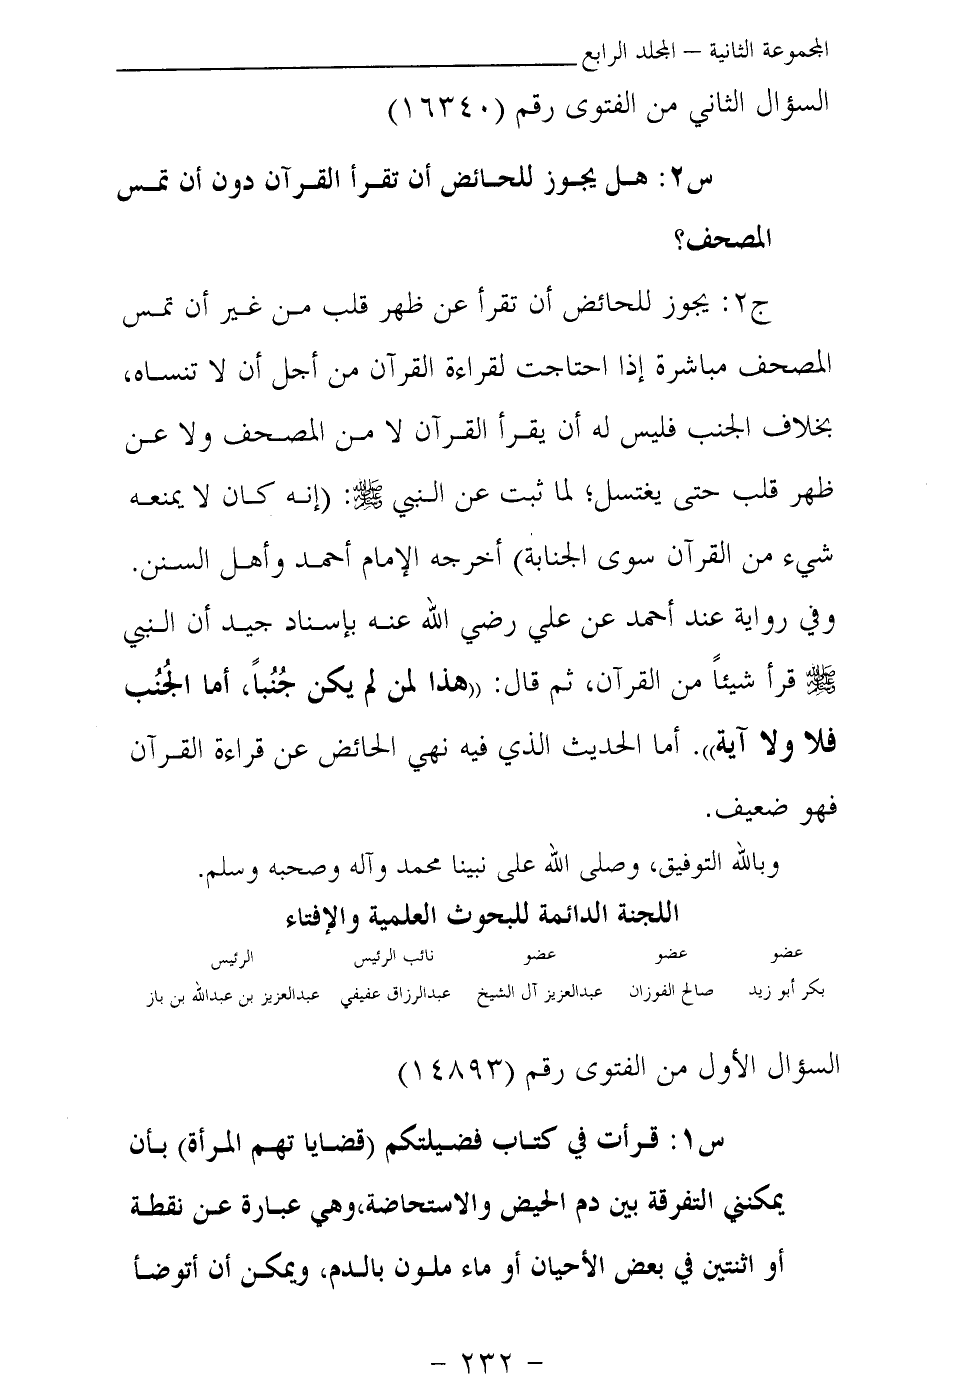 المجموعة الثانية – المجلد الرابع
السؤال الثاني من الفتوى رقم (١٦٣٤٠)
س٢: هل يجوز للحائض أن تقرأ القرآن دون أن تمس
المصحف؟
ج٢: يجوز للحائض أن تقرأ عن ظهر قلب من غير أن تمس
المصحف مباشرة إذا احتاجت لقراءة القرآن من أجل أن لا تنساه،
بخلاف الجنب فليس له أن يقرأ القرآن لا من المصحف ولا عن
ظهر قلب حتى يغتسل؛ لما ثبت عن النبي ﷺ: (إنه كان لا يمنعه
شيء من القرآن سوى الجنابة) أخرجه الإمام أحمد وأهل السنن.
وفي رواية عند أحمد عن علي رضي الله عنه بإسناد جيد أن النبي
ﷺ قرأ شيئاً من القرآن، ثم قال: ((هذا لمن لم يكن جُنُباً، أما الجُنُب
فلا ولا آية)). أما الحديث الذي فيه نهي الحائض عن قراءة القرآن
فهو ضعيف.
وبالله التوفيق، وصلى الله على نبينا محمد وآله وصحبه وسلم.
اللجنة الدائمة للبحوث العلمية والإفتاء
عضو عضو عضو نائب الرئيس الرئيس
بكر أبو زيد صالح الفوزان عبدالعزيز آل الشيخ عبدالرزاق عفيفي عبدالعزيز بن عبدالله بن باز
السؤال الأول من الفتوى رقم (١٤٨٩٣)
س١: قرأت في كتاب فضيلتكم (قضايا تهم المرأة) بأن
يمكنني التفرقة بين دم الحيض والاستحاضة،وهي عبارة عن نقطة
أو اثنتين في بعض الأحيان أو ماء ملون بالدم، ويمكن أن أتوضأ
- ٢٣٢ -